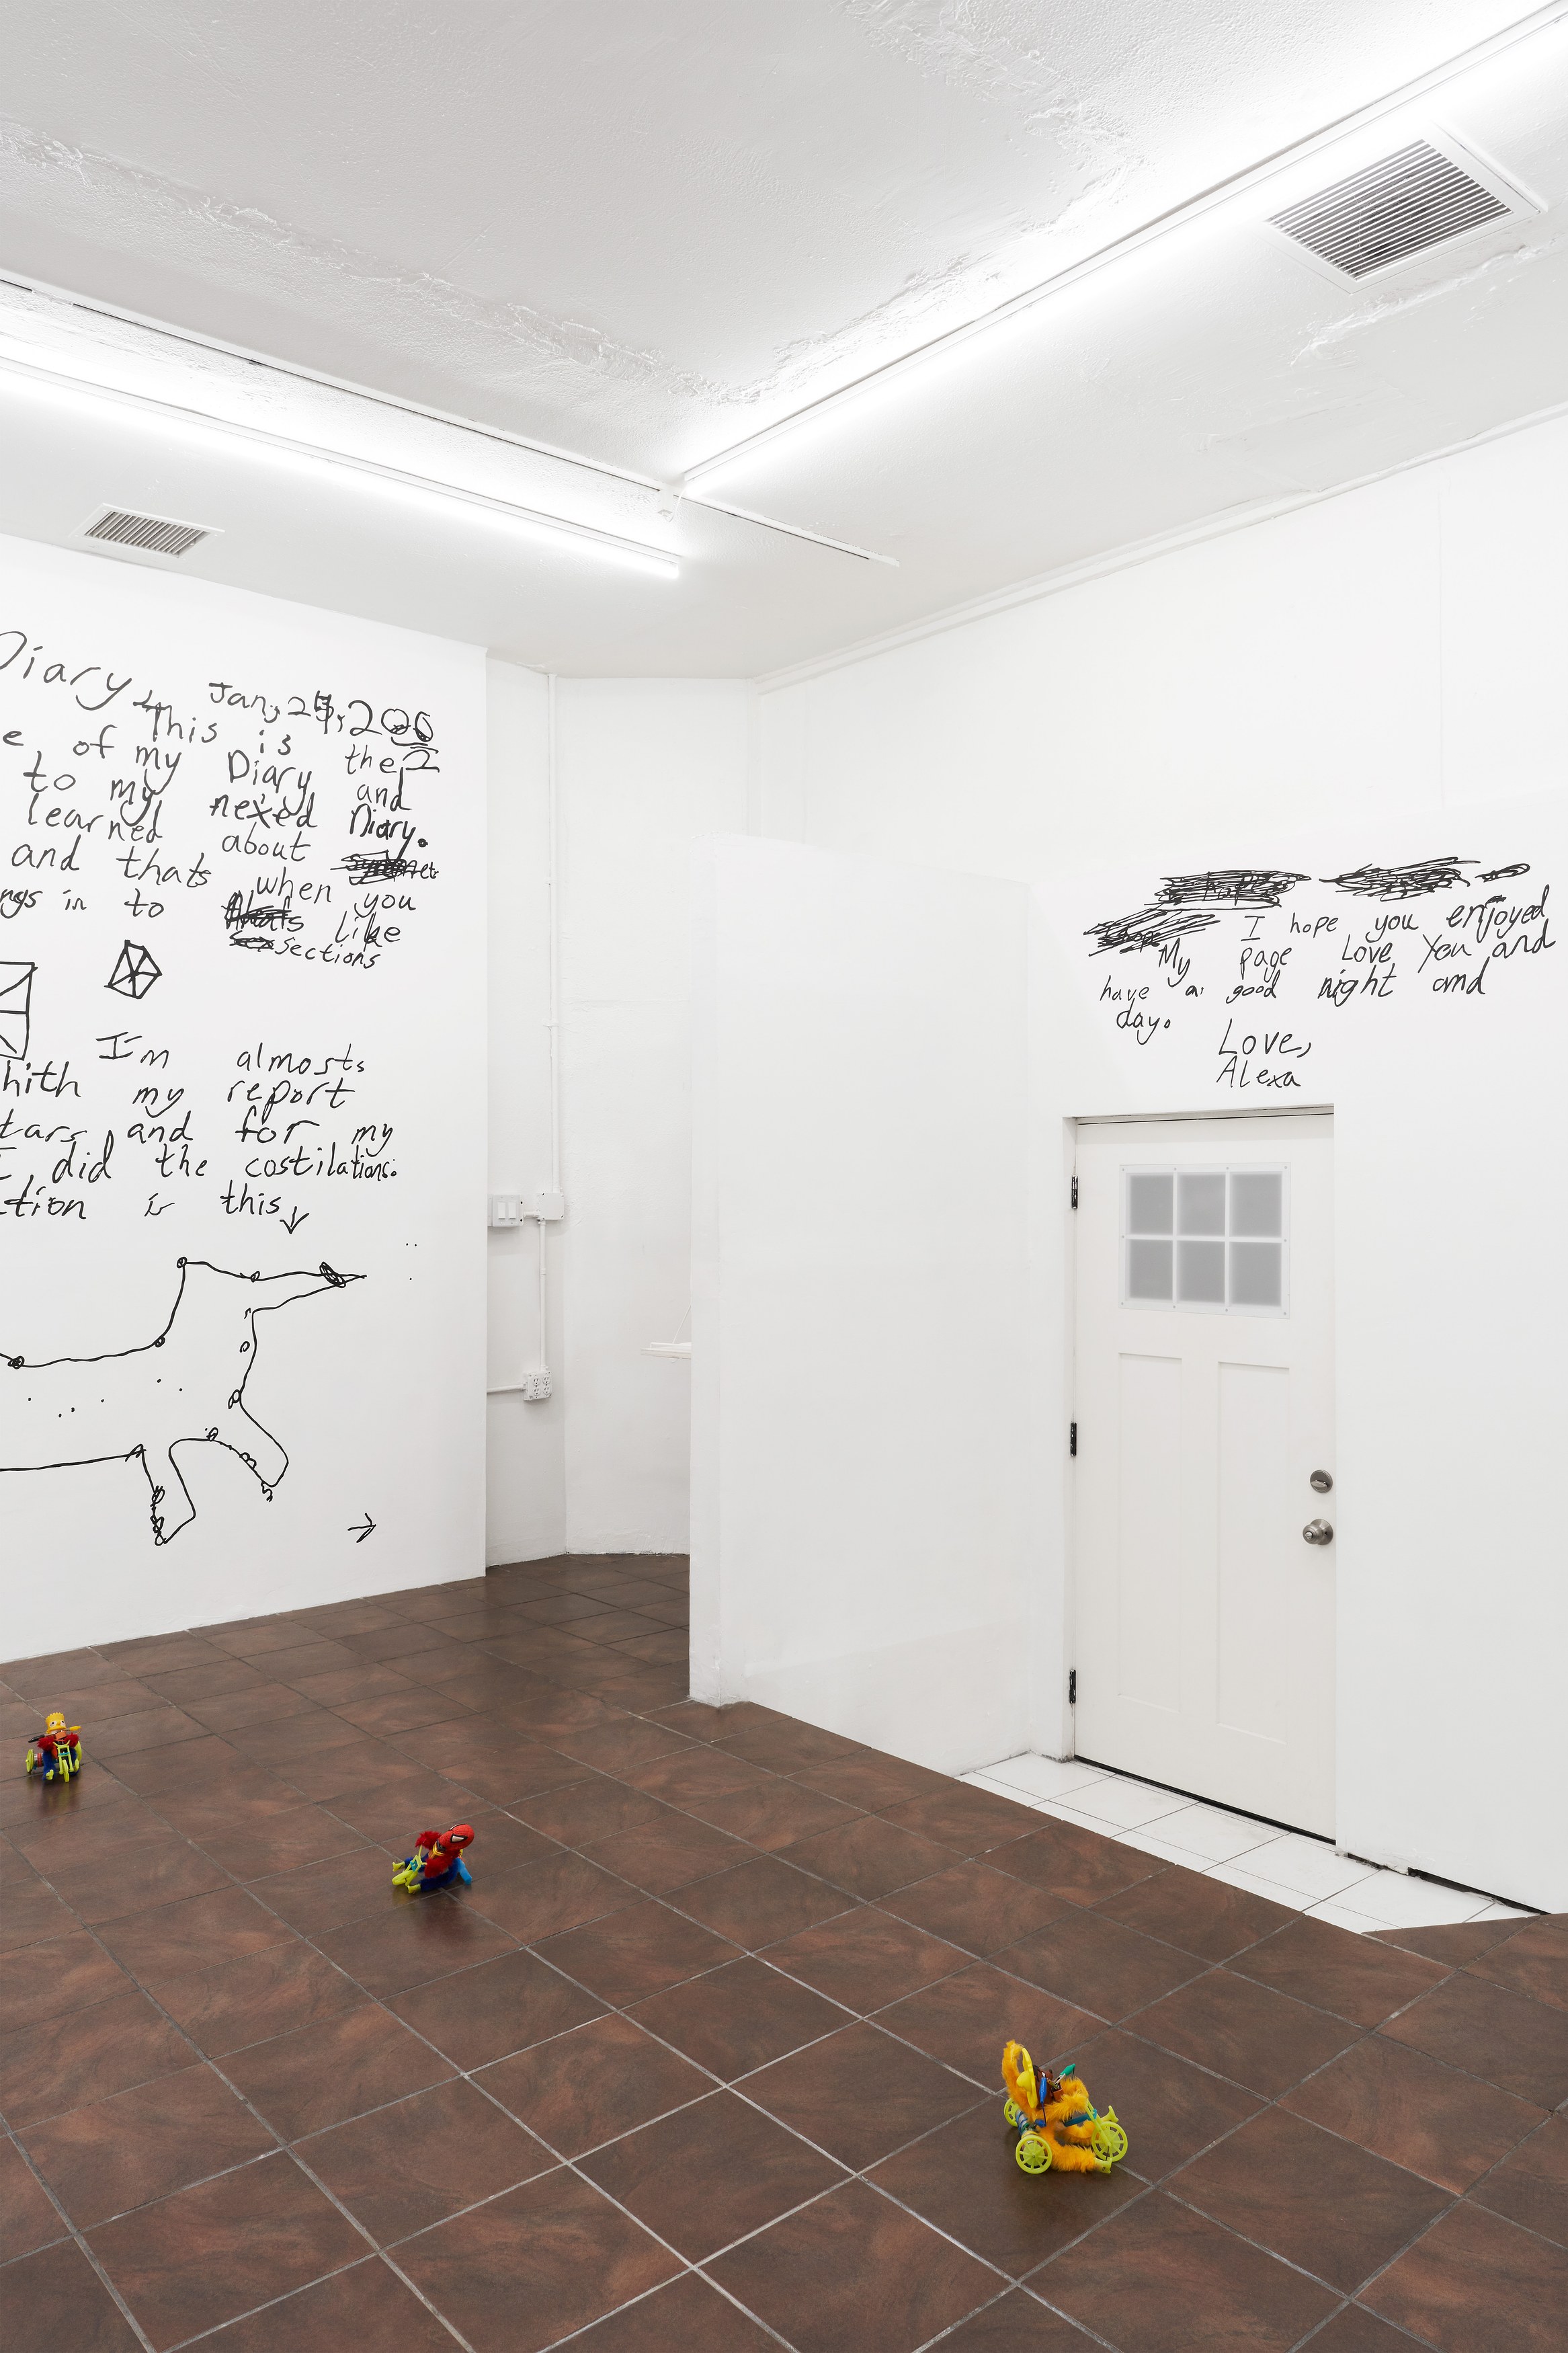 Diary, Jan, 24, 200
This is the 2
of my Diary and
to my nexed Diary.
learned about
and thats when you
ngs in to like
sections
I'm almosts
hith my report
tars and for my
I did the costilations.
tion is this
I hope you enjoyed
My page Love You and
have a good night and
day.
Love,
Alexa